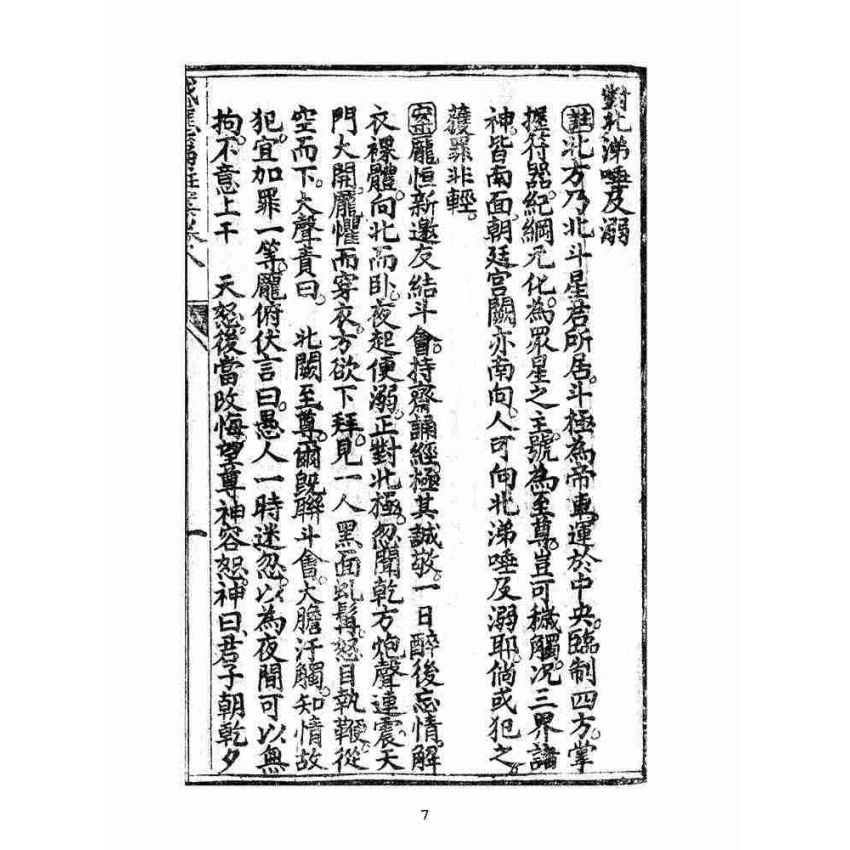 對北涕唾及溺
註北方乃北斗星君所居。斗極為帝車。運於中央。臨制四方。掌
握符器。紀綱元化。為眾星之主。號為至尊。豈可穢觸。況三界諸
神。皆南面。朝廷宮闕。亦南向。人可向北涕唾及溺耶。倘或犯之。
獲罪非輕。
案龐恒新邀友結斗會。持齋誦經。極其誠敬。一日醉後忘情。解
衣裸體。向北而卧。夜起便溺。正對北極。忽聞乾方炮聲連震。天
門大開。龐懼而穿衣。方欲下拜。見一人黑面虬髯。怒目執鞭。從
空而下。大聲責曰。北闕至尊。爾既聯斗會。大膽汙觸。知情故
犯。宜加罪一等。龐俯伏言曰。愚人一時迷忽。以為夜間可以無
拘。不意上干 天怒。後當改悔。望尊神容恕。神曰。君子朝乾夕
卷八 一
7